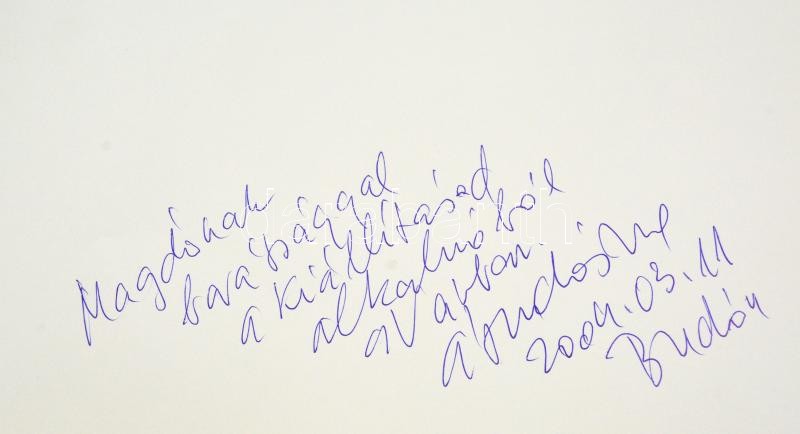 Magdónak
barátsággal
a kiállításod
alkalmából
2004.03.11
Budán
darabanth